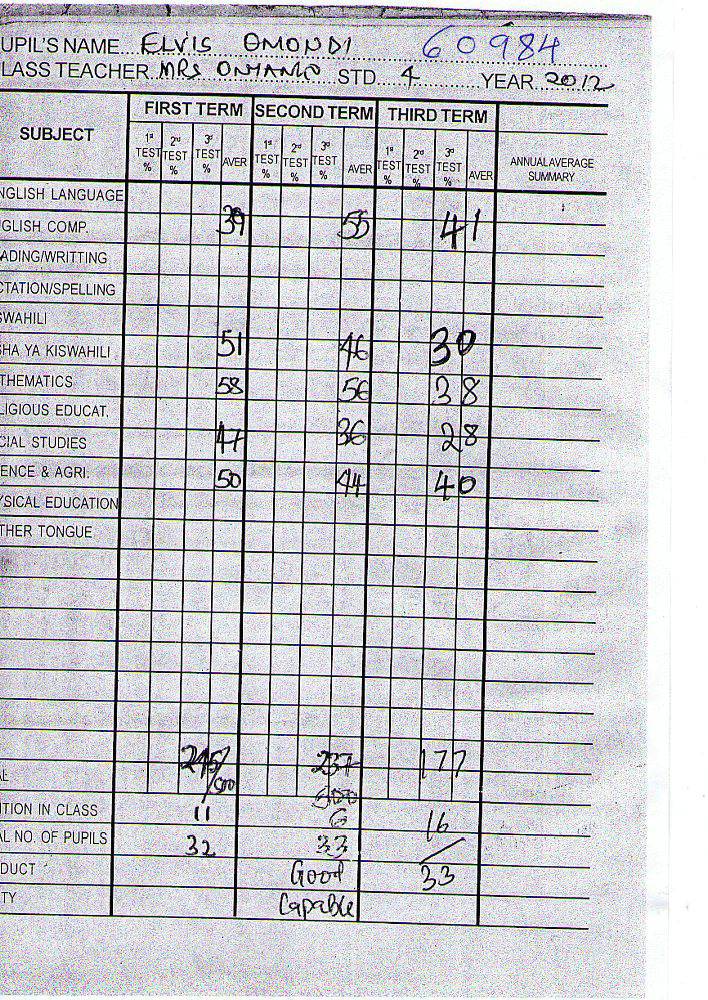 UPIL'S NAME ELVIS OMONDI 60984
LASS TEACHER MRS ONYANGO STD. 4 YEAR 2012
SUBJECT FIRST TERM SECOND TERM THIRD TERM
1st TEST % 2nd TEST % 3rd TEST % AVER 1st TEST % 2nd TEST % 3rd TEST % AVER 1st TEST % 2nd TEST % 3rd TEST % AVER ANNUAL AVERAGE SUMMARY
NGLISH LANGUAGE
GLISH COMP. 39 55 41
ADING/WRITTING
CTATION/SPELLING
SWAHILI
SHA YA KISWAHILI 51 46 30
THEMATICS 58 56 38
LIGIOUS EDUCAT.
CIAL STUDIES 47 36 28
ENCE & AGRI. 50 44 40
YSICAL EDUCATION
THER TONGUE
AL 245/500 237 500 177
ITION IN CLASS 11 6 16
AL NO. OF PUPILS 32 33 33
DUCT Good
TY Capable